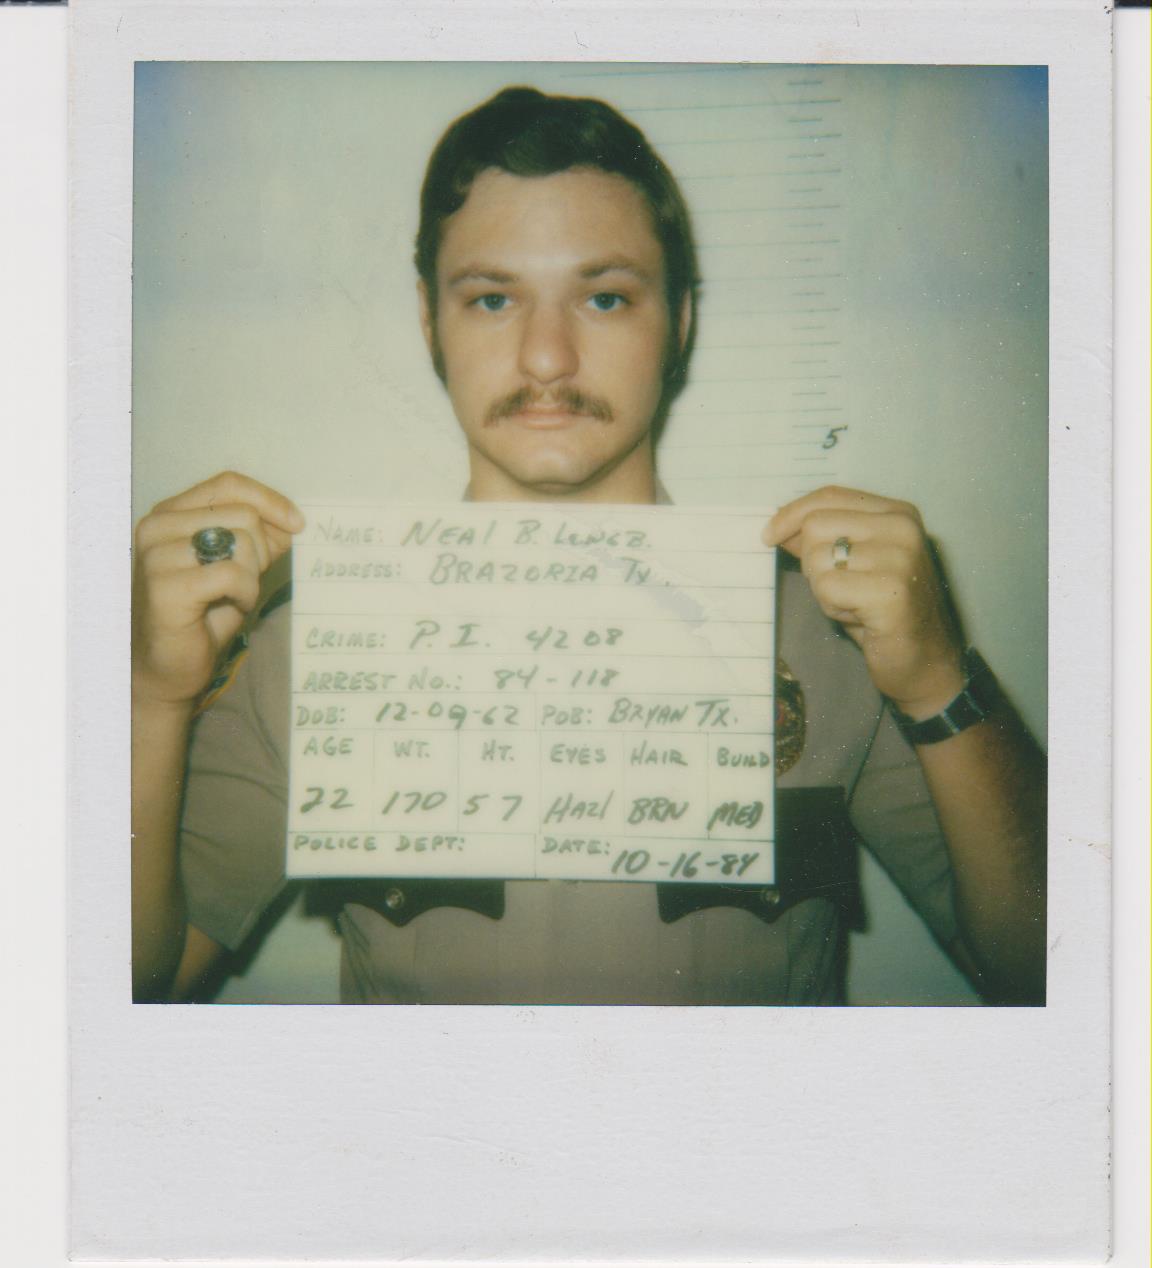 5'
NAME: NEAl B.
ADDRESS: BRAZORIA Tx.
CRIME: P. I. 4208
ARREST No.: 84-118
DOB: 12-09-62 POB: BRYAN TX.
AGE WT. HT. EYES HAIR BUILD
22 170 5 7 HAZl BRN MED
POLICE DEPT: DATE: 10-16-84